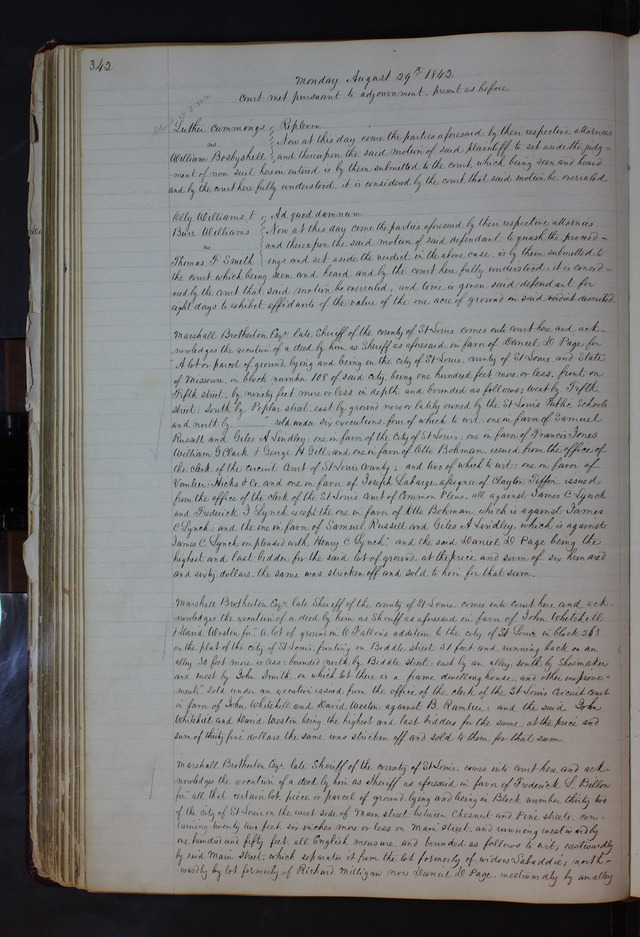 342
Monday August 29th 1842
Court met pursuant to adjournment. present as before
Luther Cummongs } Replevin
vs } Now at this day come the parties aforesaid by their respective attornies
William Boshyshell } and thereupon the said motion of said plaintiff to set aside the judg-
ment of non suit herein entered is by them submitted to the court which being seen and heard
and by the court here fully understood. it is considered by the court that said motion be overruled
Ely Williams & } Ad quod damnum
Burr Williams } Now at this day come the parties aforesaid by their respective attornies.
vs } and thereupon the said motion of said defendant to quash the proceed-
Thomas F. Smith } ings and set aside the verdict in the above case, is by them submitted to
the court which being seen and heard and by the court here fully understood; it is consid-
ered by the court that said motion be overruled, and time is given said defendant for
eight days to exhibit affidavits of the value of the one acre of ground in said verdict described
Marshall Brotherton Esqr. late Sheriff of the county of St Louis comes into court here and ack-
nowledges the execution of a deed by him as Sheriff as aforesaid in favor of Daniel D Page for
"A lot or parcel of ground lying and being in the city of St Louis, county of St Louis, and State
of Missouri, in block number 108 of said city, being one hundred feet more or less, front on
Fifth street, by ninety feet more or less in depth and bounded as follows; west by Fifth
street: South by Poplar street; east by ground now or lately owned by the St Louis Public Schools
and north by sold under six executions, four of which to wit: one in favor of Samuel
Russell and Giles A Lindley: one in favor of the City of St Louis, one in favor of Francis Jones
William G Clark & George H Gill: and one in favor of Otto Bohman, issued from the office of
the clerk of the circuit Court of St Louis County; and two of which to wit: one in favor of
Vantier: Hicks & Co. and one in favor of Joseph Labarge, assignee of Clayton Tiffin, issued
from the office of the clerk of the St Louis Court of Common Pleas, all against James C Lynch
and Frederick J Lynch except the one in favor of Otto Bohman which is against James
C Lynch; and the one in favor of Samuel Russell and Giles A Lindley, which is against
James C Lynch impleaded with Henry C Lynch: and the said Daniel D Page being the
highest and last bidder for the said lot of ground, at the price and sum of six hundred
and sixty dollars the same was stricken off and sold to him for that sum.
Marshall Brotherton Esqr. late Sheriff of the county of St Louis. comes into court here and ack-
nowledges the execution of a deed by him as Sheriff as aforesaid in favor of John Whitehill
& David Weston for "A lot of ground in O'Fallons addition to the city of St Louis in block 263
on the plat of the city of St Louis, fronting on Biddle street 51 feet and running back on an
alley 30 feet more or less: bounded north by Biddle street: east by an alley, south by Shoemaker
and west by John Smith, on which lot there is a frame dwelling house and other improve-
ments", sold under an execution issued from the office of the clerk of the St Louis Circuit Court
in favor of John Whitehill and David Weston against B. Rantier; and the said John
Whitehill and David Weston being the highest and last bidders for the same at the price and
sum of thirty five dollars the same was stricken off and sold to them for that sum.
Marshall Brotherton Esqr. late Sheriff of the county of St Louis, comes into court here and ack-
nowledges the execution of a deed by him as Sheriff as aforesaid in favor of Frederick L Billon
for "all that certain lot, piece or parcel of ground lying and being in Block number thirty two
of the city of St Louis on the west side of Main street between Chesnut and Pine streets, con-
taining twenty two feet six inches more or less on Main street, and running westwardly
one hundred and fifty feet, all English measure, and bounded as follows to wit, eastwardly
by said Main street, which separates it from the lot formerly of widow Labaddie, north-
wardly by lot formerly of Richard Milligan now Daniel D Page, westwardly by an alley